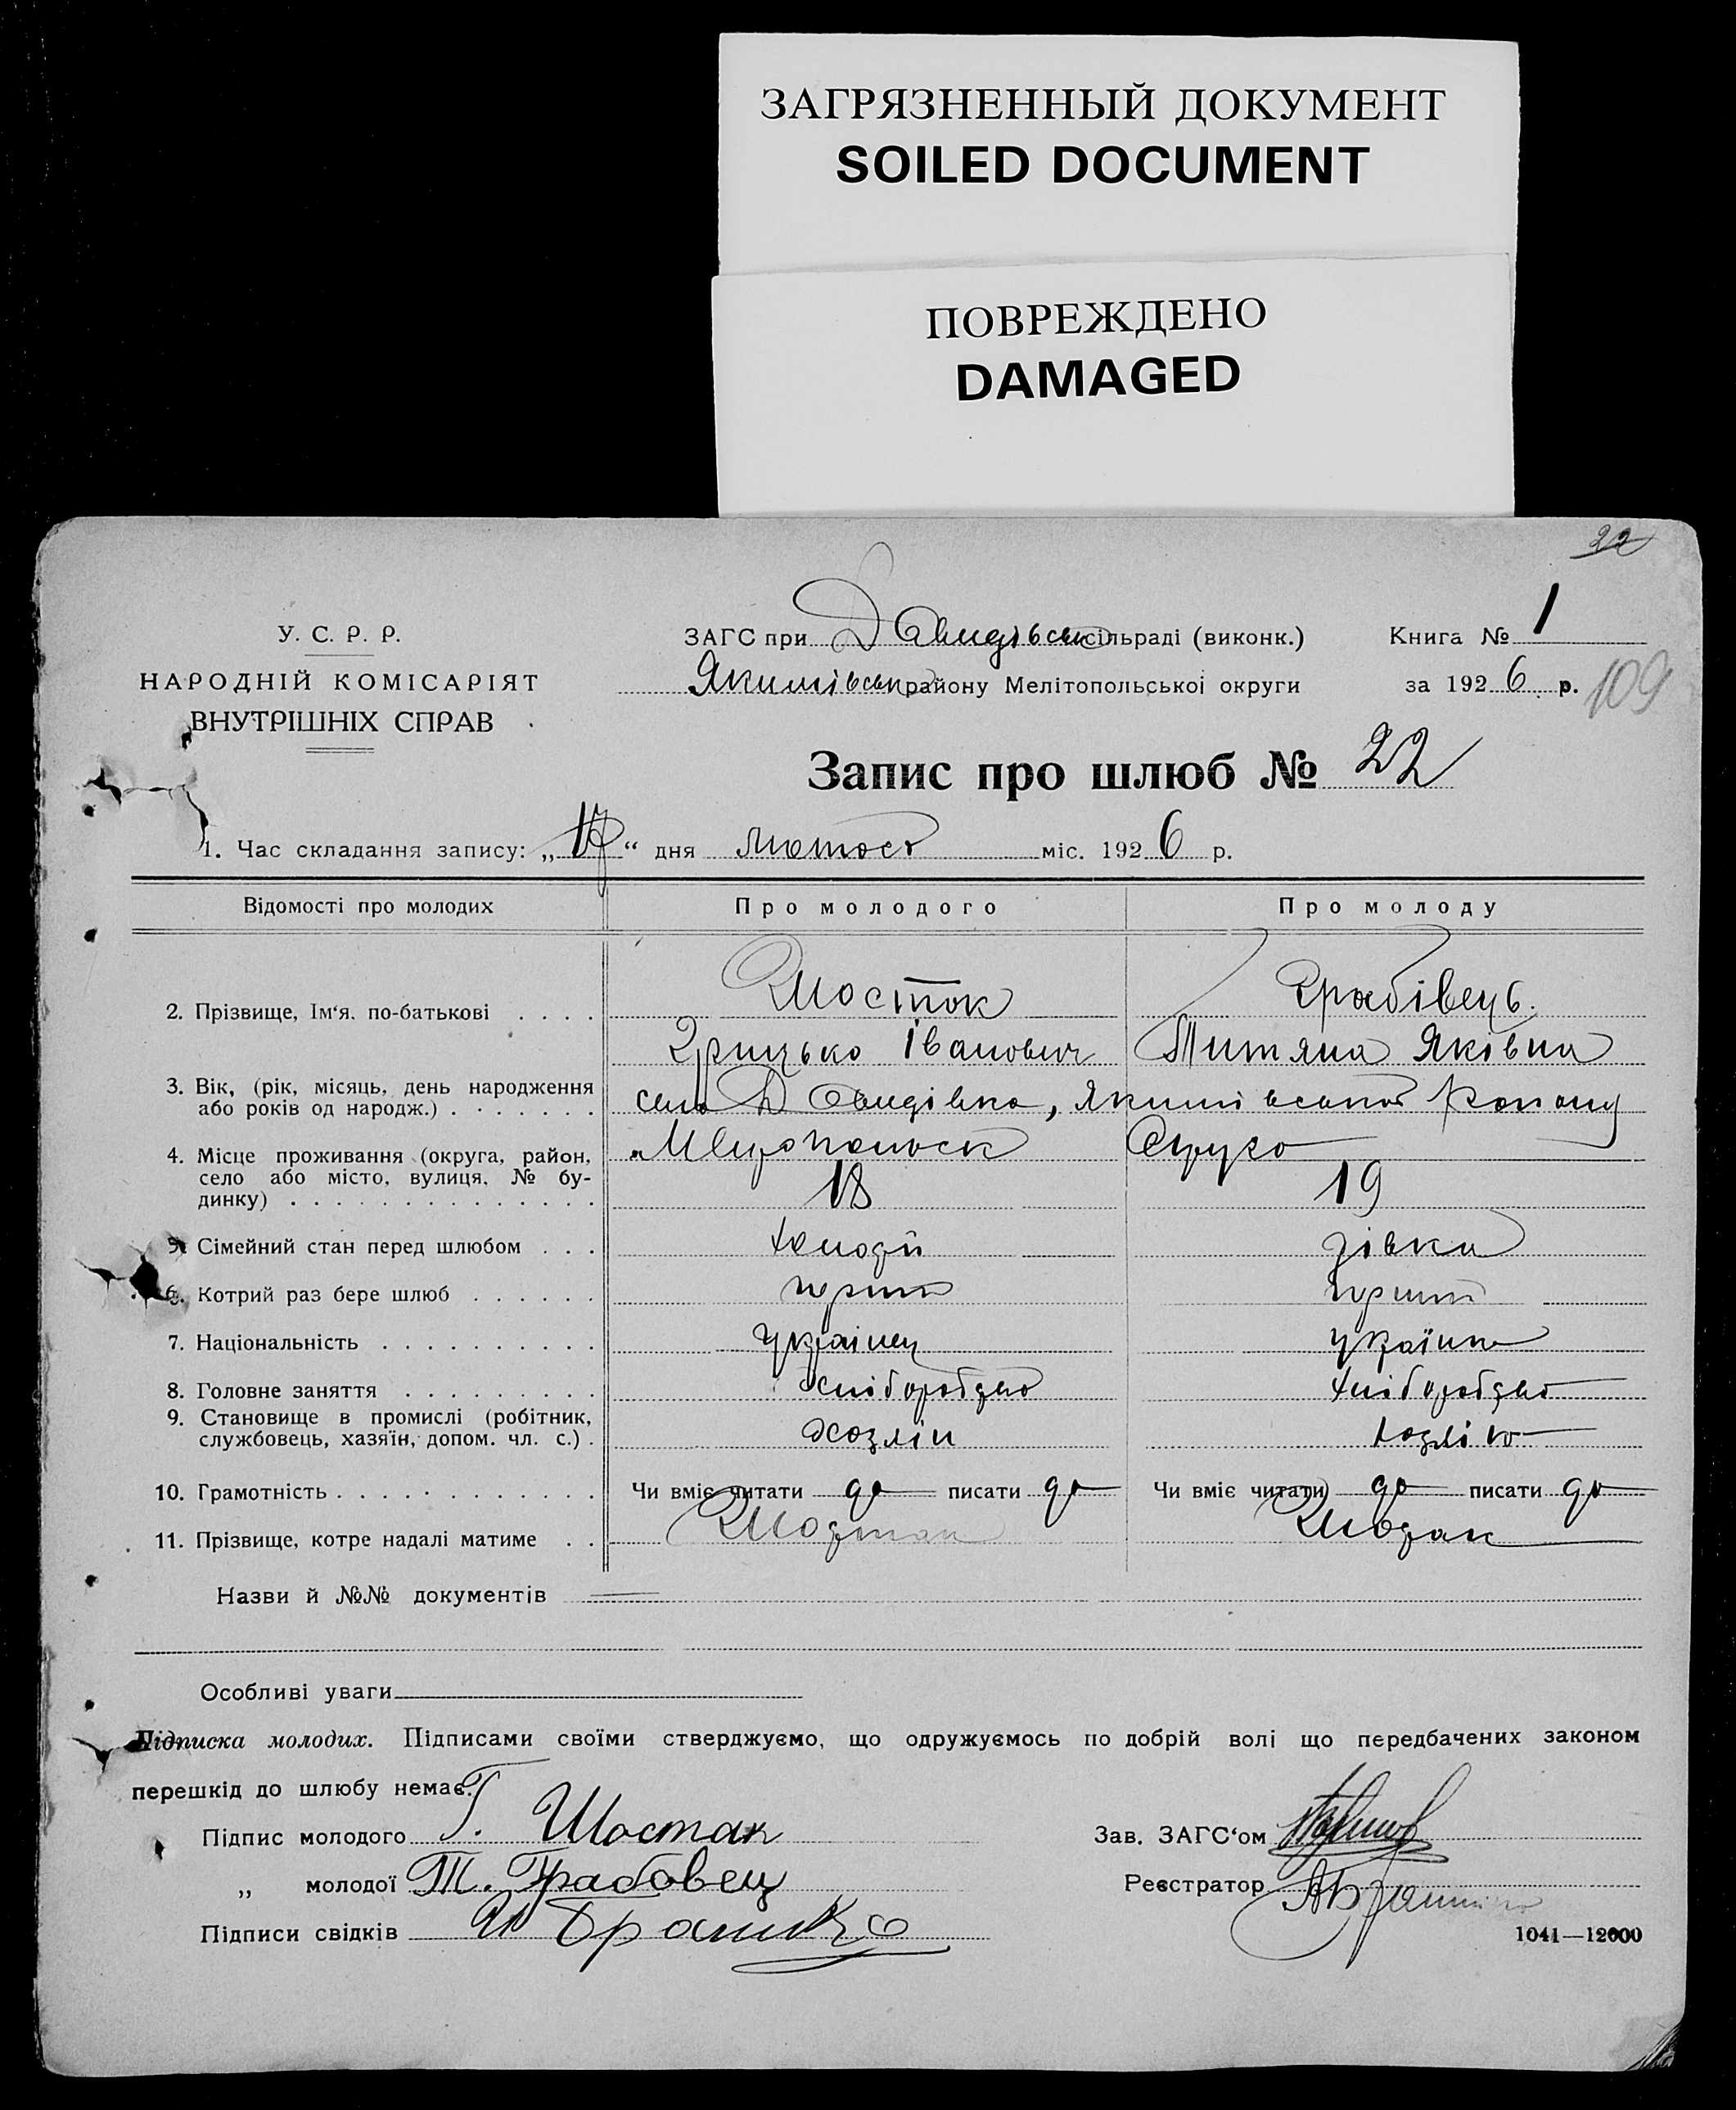 ЗАГРЯЗНЕННЫЙ ДОКУМЕНТ
SOILED DOCUMENT
ПОВРЕЖДЕНО
DAMAGED
22
У. С. Р. Р.
НАРОДНІЙ КОМІСАРІЯТ
ВНУТРІШНІХ СПРАВ
ЗАГС при Давидівськ сільраді (виконк.)
Книга № 1
Якимівськ району Мелітопольської округи
за 1926 р.
109
Запис про шлюб № 22
1. Час складання запису: „17“ дня лютого міс. 1926 р.
Відомості про молодих Про молодого Про молоду
2. Прізвище, Ім‘я, по-батькові . . . . Шосток Грабівець
Грицько Іванович Титяна Яківна
3. Вік, (рік, місяць, день народження або років од народж.) . . . . . . . село Давидівка, Якимівського
4. Місце проживання (округа, район, село або місто, вулиця, № будинку) . . . . . . . . . . . . . .
18 19
5. Сімейний стан перед шлюбом . . . дівка
6. Котрий раз бере шлюб . . . . . .
7. Національність . . . . . . . . . . Українец українка
8. Головне заняття . . . . . . . . . Хліборобство хліборобство
9. Становище в промислі (робітник, службовець, хазяїн, допом. чл. с.) .
10. Грамотність . . . . . . . . . . . . Чи вміє читати до писати до Чи вміє читати до писати до
11. Прізвище, котре надалі матиме . .
Назви й №№ документів
Особливі уваги
Підписка молодих. Підписами своїми стверджуємо, що одружуємось по добрій волі що передбачених законом
перешкід до шлюбу немає.
Підпис молодого Г. Шостак
Зав. ЗАГС‘ом
„ молодої Т. Грабовец
Реєстратор
Підписи свідків
1041—12000